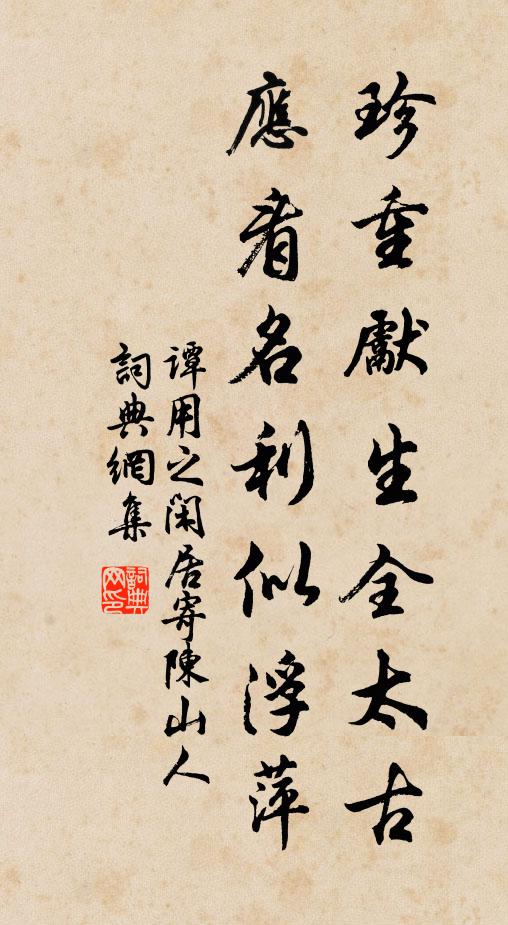 珍重獻生全太古
應看名利似浮萍
譚用之閑居寄陳山人
詞典網集
詞典網印